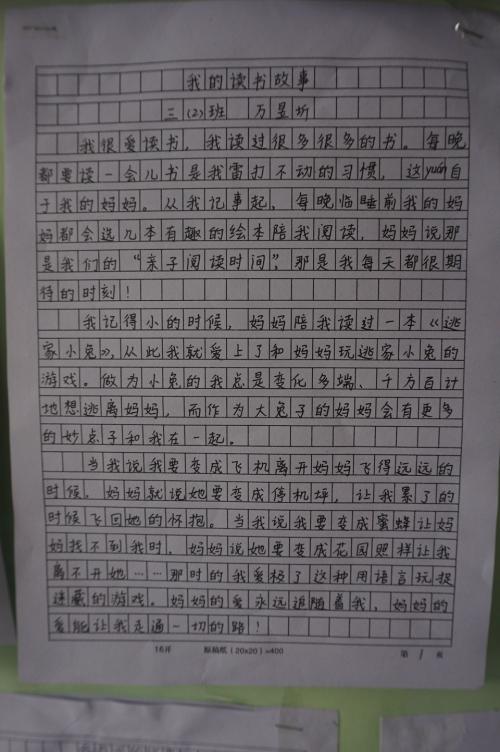 我的读书故事
三(2)班 万昱圻
我很爱读书，我读过很多很多的书。每晚
都要读一会儿书是我雷打不动的习惯，这yuán自
于我的妈妈。从我记事起，每晚临睡前我的妈
妈都会选几本有趣的绘本陪我阅读，妈妈说那
是我们的“亲子阅读时间”，那是我每天都很期
待的时刻！
我记得小的时候，妈妈陪我读过一本《逃
家小兔》，从此我就爱上了和妈妈玩逃家小兔的
游戏。做为小兔的我总是变化多端、千方百计
地想逃离妈妈，而作为大兔子的妈妈会有更多
的妙点子和我在一起。
当我说我要变成飞机离开妈妈飞得远远的
时候，妈妈就说她要变成停机坪，让我累了的
时候飞回她的怀抱。当我说我要变成蜜蜂让妈
妈找不到我时，妈妈说她要变成花园照样让我
离不开她……那时的我爱极了这种用语言玩捉
迷藏的游戏。妈妈的爱永远追随着我，妈妈的
爱能让我走遍一切的路！
16开 原稿纸（20x20）=400 第 1 页